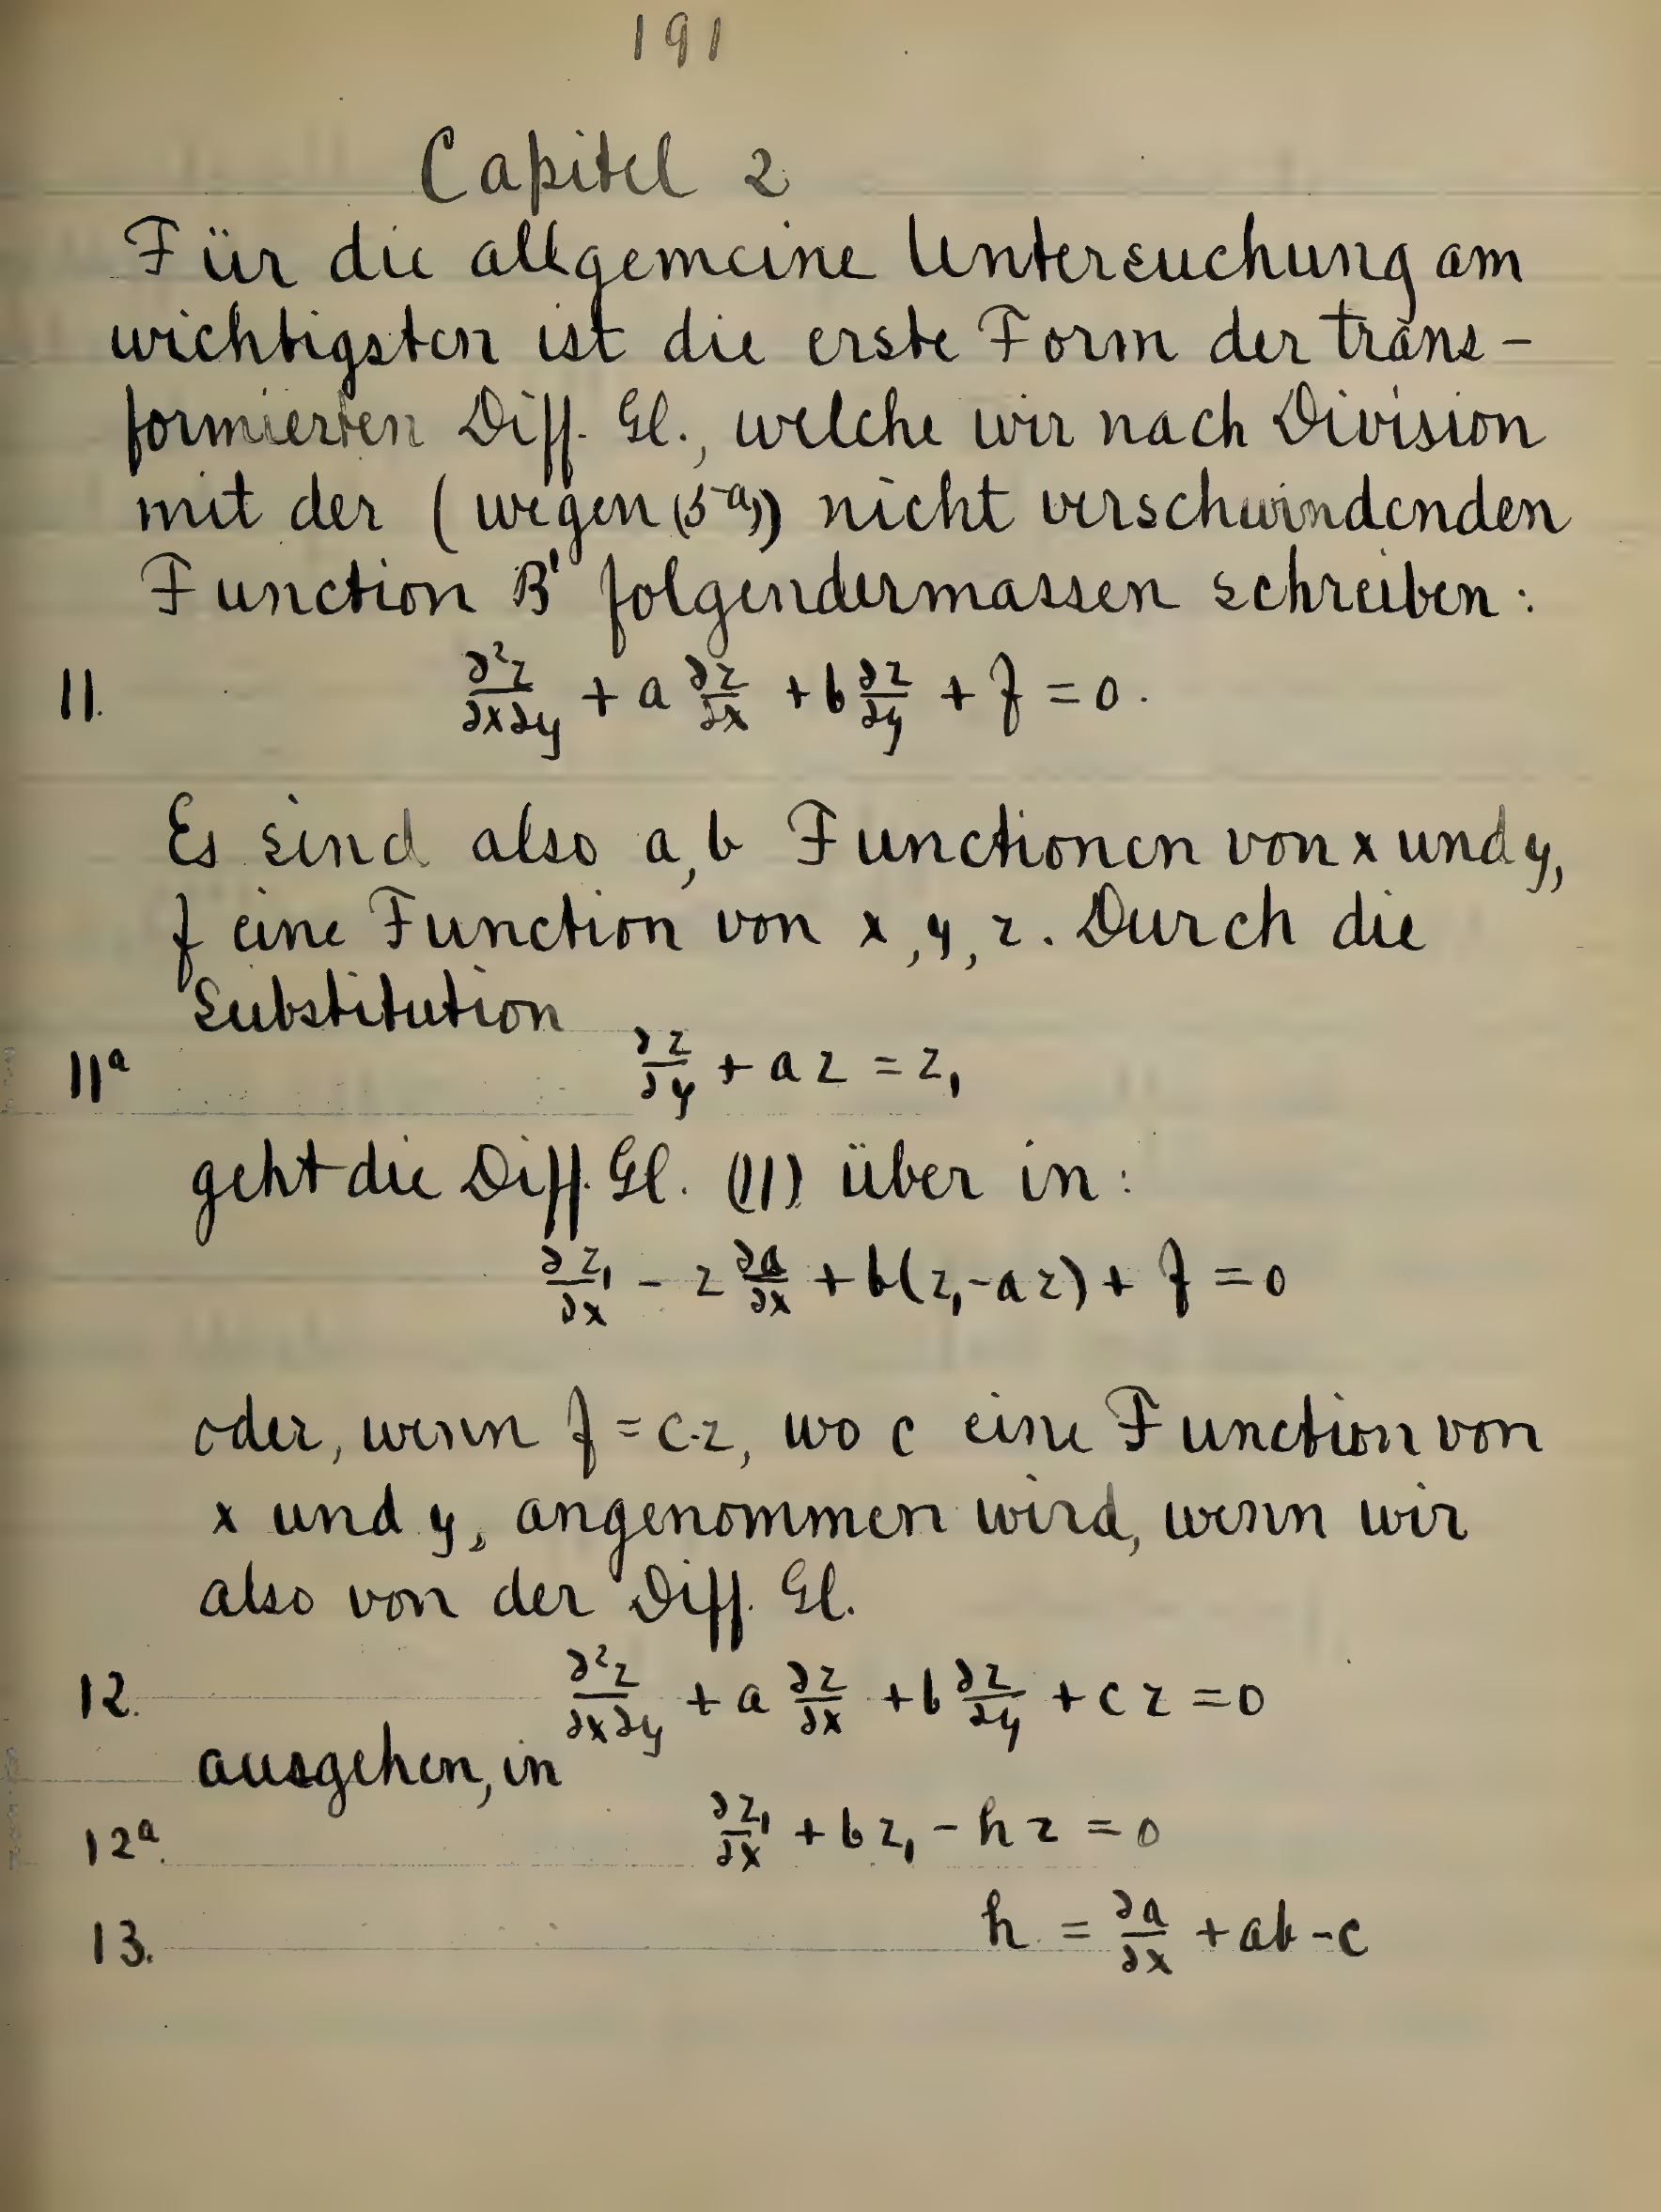 191
Capitel 2
Für die allgemeine Untersuchung am
wichtigsten ist die erste Form der trans-
formierten Diff. Gl., welche wir nach Division
mit der (wegen (5ᵃ)) nicht verschwindenden
Function B' folgendermassen schreiben:
11. ∂²z/∂x∂y + a ∂z/∂x + b ∂z/∂y + f = 0.
Es sind also a, b Functionen von x und y,
f eine Function von x, y, z. Durch die
Substitution
11ᵃ ∂z/∂y + az = z₁
geht die Diff. Gl. (11) über in:
∂z₁/∂x - z ∂a/∂x + b(z₁-az) + f = 0
oder, wenn f = c·z, wo c eine Function von
x und y, angenommen wird, wenn wir
also von der Diff. Gl.
12. ∂²z/∂x∂y + a ∂z/∂x + b ∂z/∂y + cz = 0
ausgehen, in
12ᵃ. ∂z₁/∂x + bz₁ - hz = 0
13. h = ∂a/∂x + ab - c